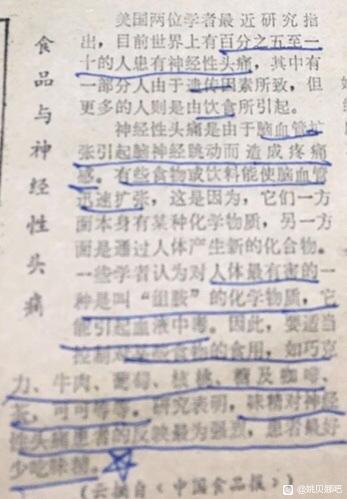 食品与神经性头痛
美国两位学者最近研究指
出，目前世界上有百分之五至一
十的人患有神经性头痛，其中有
一部分人由于遗传因素所致，但
更多的人则是由饮食所引起。
神经性头痛是由于脑血管扩
张引起脑神经跳动而造成疼痛
感。有些食物或饮料能使脑血管
迅速扩张，这是因为，它们一方
面本身有某种化学物质，另一方
面是通过人体产生新的化合物。
一些学者认为对人体最有害的一
种是叫“组胺”的化学物质，它
能引起血液中毒。因此，要适当
控制对某些食物的食用，如巧克
力、牛肉、葡萄、核桃、糖及咖啡、
茶，可可等等。研究表明，味精对神经
性头痛患者的反映最为强烈，患者最好
少吃味精。
（摘自《中国食品报》
@姚贝娜吧